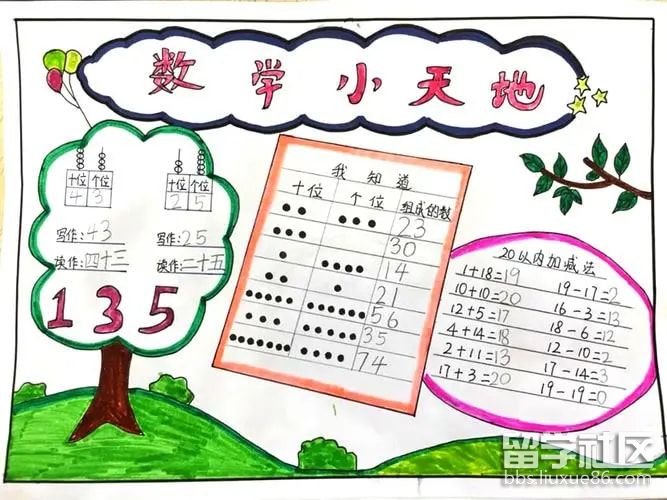 数学小天地
十位 个位
4 3
写作:43
读作:四十三
十位 个位
2 5
写作:25
读作:二十五
1 3 5
我知道
十位 个位 组成的数
23
30
14
21
56
35
74
20以内加减法
1+18=19 19-17=2
10+10=20 16-3=13
12+5=17 18-6=12
4+14=18 12-10=2
2+11=13 17-14=3
17+3=20 19-19=0
留学社区
bbs.liuxue86.com